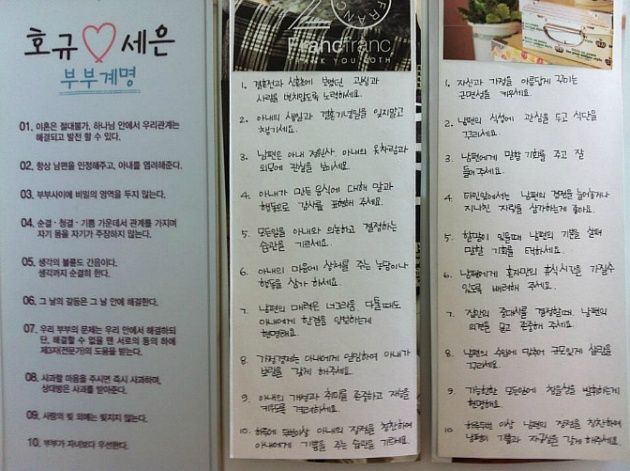 호규♡세은
부부계명
01. 이혼은 절대불가, 하나님 안에서 우리관계는
해결되고 발전 할 수 있다.
02. 항상 남편을 인정해주고, 아내를 염려해준다.
03. 부부사이에 비밀의 영역을 두지 않는다.
04. 순결·청결·기쁨 가운데서 관계를 가지며
자기 몸을 자기가 주장하지 않는다.
05. 생각의 불륜도 간음이다.
생각까지 순결히 한다.
06. 그 날의 갈등은 그 날 안에 해결한다.
07. 우리 부부의 문제는 우리 안에서 해결하되
단, 해결할 수 없을 땐 서로의 동의 하에
제3자(전문가)의 도움을 받는다.
08. 사과할 마음을 주시면 즉시 사과하며,
상대방은 사과를 받아준다.
09. 사랑의 빚 외에는 빚지지 않는다.
10. 부부가 자녀보다 우선한다.
FRANC
Francfranc
THANK YOU BOTH
1. 결혼전과 신혼초에 보였던 관심과
사랑이 변치않도록 노력하세요.
2. 아내의 생일과 결혼기념일을 잊지말고
챙기세요.
3. 남편은 아내 전용사. 아내의 옷차림과
외모에 관심을 보이세요.
4. 아내가 만든 음식에 대해 말과
행동으로 감사를 표현해 주세요.
5. 모든일을 아내와 의논하고 결정하는
습관을 기르세요.
6. 아내의 마음에 상처를 주는 농담이나
행동을 삼가 하세요.
7. 남편의 매력은 너그러움. 다툴때도
아내에게 한결 양보하는게
현명해요.
8. 가정경제는 아내에게 일임하여 아내가
보람을 갖게 해주세요.
9. 아내의 개성과 취미를 존중하고 재능을
키우도록 격려하세요.
10. 하루에 두번이상 아내의 장점을 칭찬하여
아내에게 기쁨을 주는 습관을 기르세요.
1. 자신과 가정을 아름답게 꾸미는
근면성을 키우세요.
2. 남편의 식성에 관심을 두고 식단을
꾸리세요.
3. 남편에게 말할 기회를 주고 잘
들어주세요.
4. 타인앞에서는 남편의 결점을 늘어놓거나
지나친 자랑을 삼가하는게 좋아요.
5. 할말이 있을때 남편의 기분을 살펴
말할 기회를 택하세요.
6. 남편에게 혼자만의 휴식시간을 가질수
있도록 배려해 주세요.
7. 집안의 중대사를 결정할때, 남편의
의견을 묻고 존중해 주세요.
8. 남편의 수입에 맞추어 규모있게 살림을
꾸리세요.
9. 가능한한 모든일에 침묵을 발휘하는게
현명해요.
10. 하루두번 이상 남편의 장점을 칭찬하여
남편의 기쁨과 자긍심을 갖게 하세요.